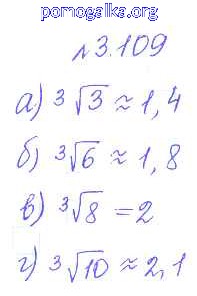 pomogalka.org
№3.109
а) ³√3 ≈ 1,4
б) ³√6 ≈ 1,8
в) ³√8 = 2
г) ³√10 ≈ 2,1